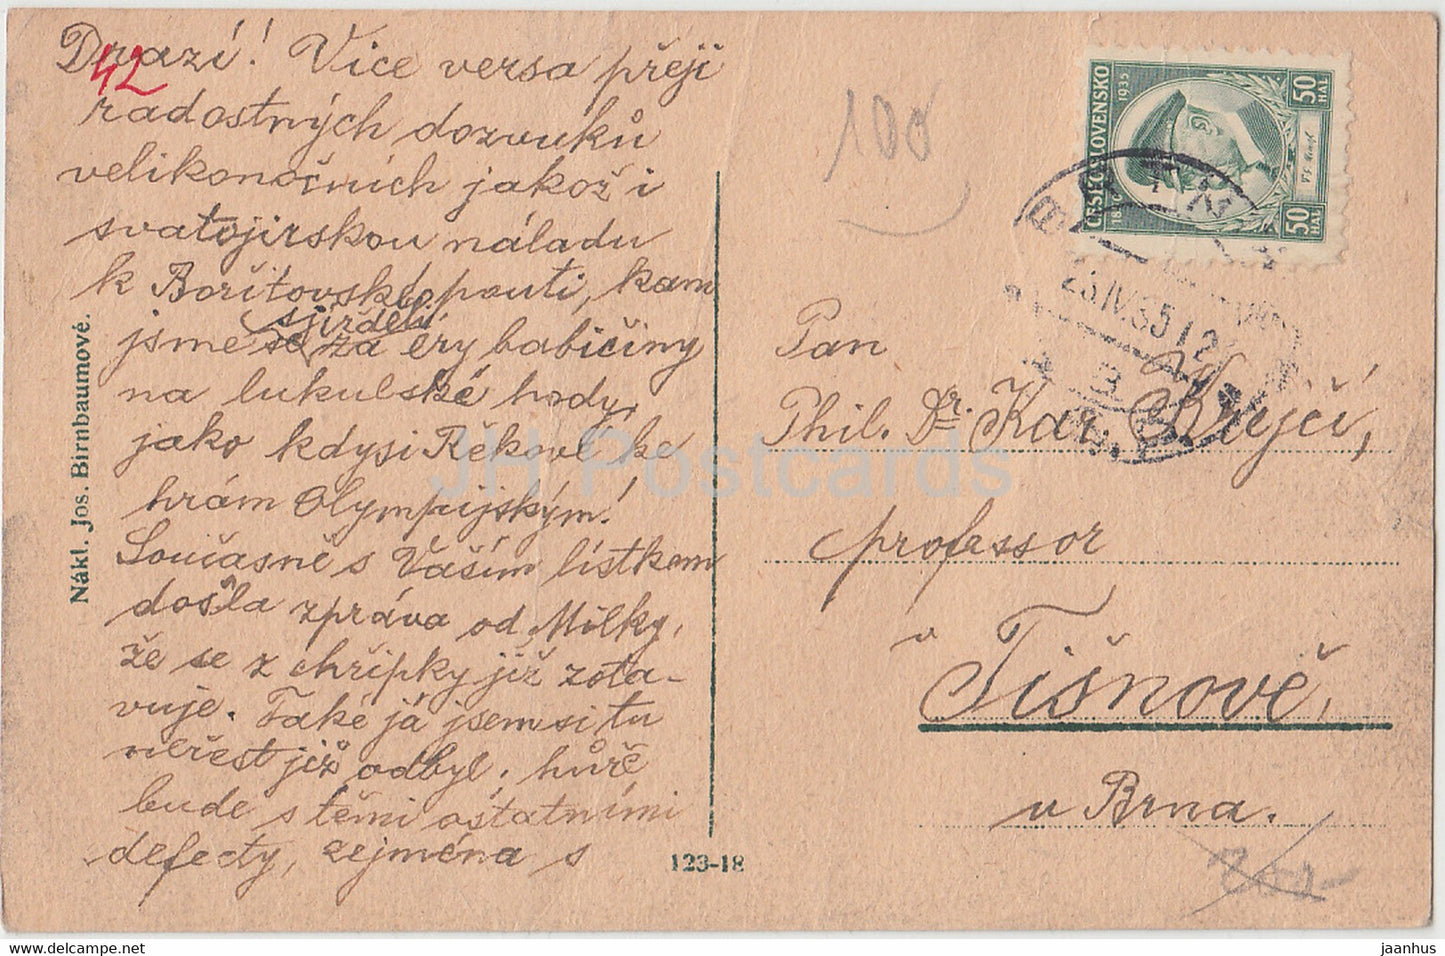 Drazí! Vice versa přeji
42
radostných dozvuků
velikonočních jakož i
svatojirskou náladu
k Bořitovské pouti, kam
sjížděli
jsme se za éry babičiny
na lukulské hody,
jako kdysi Řěkové ke
hrám Olympijským!
Současně s Vaším lístkem
došla zpráva od Milky,
že se z chřipky již zota-
vuje. Také já jsem si tu
neřest již odbyl. hůře
bude s těmi ostatními
defecty, zejména s
Nákl. Jos. Birnbaumové.
123-18
100
ČESKOSLOVENSKO
1935
50 HAL
50 HAL
23.IV.35 12
Pan
Phil. Dr. Kar. Krejčí,
professor
v Tišnově,
u Brna.
JH Postcards
www.delcampe.net
jaanhus